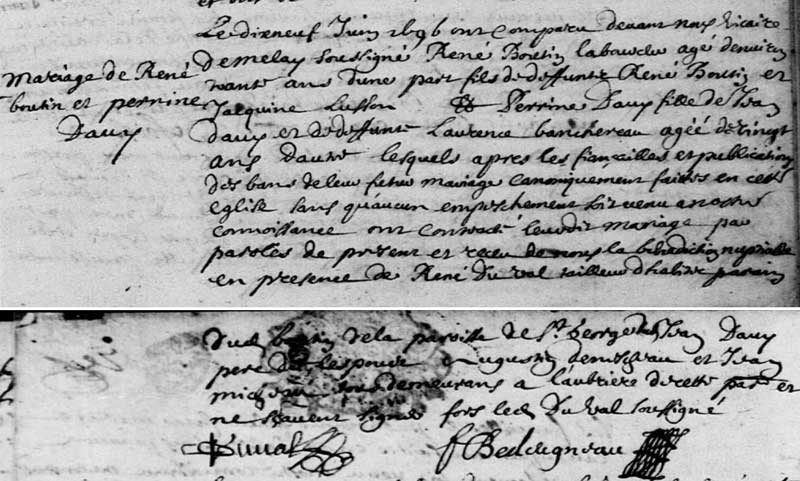 Mariage de René
boutin et perrine
Dauy
Le dixneuf Juin 1696 ont comparu devant nous vicaire
de melay soussigné René Boutin laboureur agé denviron
trante ans d'une part fils de deffuntz René Boutin et
Jacquine Lusson Et Perrine Dauy fille de Jean
dauy et de deffunte Laurence banchereau agéé de vingt
ans dautre lesquels apres les fiançailles et publication
des bans de leur futur mariage canoniquement faittes en cette
eglise sans qu'aucun empeschement soit venu a notre
connoissance ont contracté leurdit mariage par
paroles de present et receu de nous la bénédiction nuptialle
en presence de René Du val tailleur dhabitz parain
dud boutin de la paroisse de St george Jean Dauy
pere de lespouse augustin et Jean
demeurans a laubriere de cette par et
ne scavent signer fors led Du val soussigné
Duval f Bedouigneau